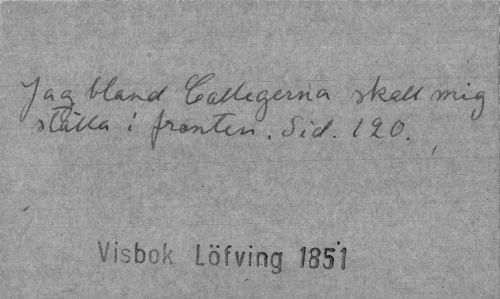 Jag bland Collegerna skall mig
ställa i fronten. Sid. 120.
Visbok Löfving 1851